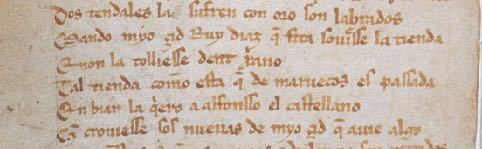 Dos tendales la sufren con oro son labrados
Mando myo çid Ruy diaz q̃ fita souisse la tienda
E non la tolliesse dent xp̃ano
Tal tienda commo esta q̃ de maruecos es passada
En biar la q̃ero a alfonsso el castellano
Q̃ crouiesse sos nueuas de myo çid q̃ auie algo